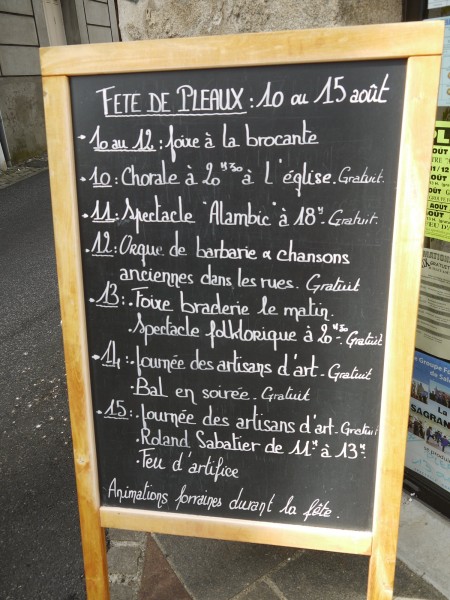 FETE DE PLEAUX : 10 au 15 août
10 au 12 : foire à la brocante
10 : Chorale à 20H30 à l'église. Gratuit.
11 : Spectacle "Alambic" à 18H. Gratuit.
12 : Orgue de barbarie & chansons
anciennes dans les rues. Gratuit
13 : . Foire braderie le matin.
. Spectacle folklorique à 20H30. Gratuit
14 : . Journée des artisans d'art. Gratuit
. Bal en soirée. Gratuit
15 : . Journée des artisans d'art. Gratuit
. Roland Sabatier de 11H à 13H.
. Feu d'artifice
Animations forraines durant la fête.
La
SAGRAN